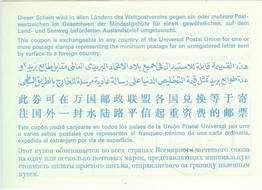 Dieser Schein wird in allen Ländern des Weltpostvereins gegen ein oder mehrere Post-
wertzeichen im Gesamtwert der Mindestgebühr für einen gewöhnlichen, auf dem
Land- und Seeweg beförderten Auslandsbrief umgetauscht.
This coupon is exchangeable in any country of the Universal Postal Union for one or
more postage stamps representing the minimum postage for an unregistered letter sent
by surface to a foreign country.
此券可在万国邮政联盟各国兑换等于寄
往国外一封水陆路平信起重资费的邮票
Este cupón podrá canjearse en todos los países de la Unión Postal Universal por uno
u varios sellos postales que representen el franqueo mínimo de una carta ordinaria,
expedida al extranjero por vía de superficie.
Этот купон обменивается во всех странах Всемирного почтового союза
на одну или несколько почтовых марок, представляющих минимальную
стоимость оплаты простого письма, отправляемого за границу наземным
путем.